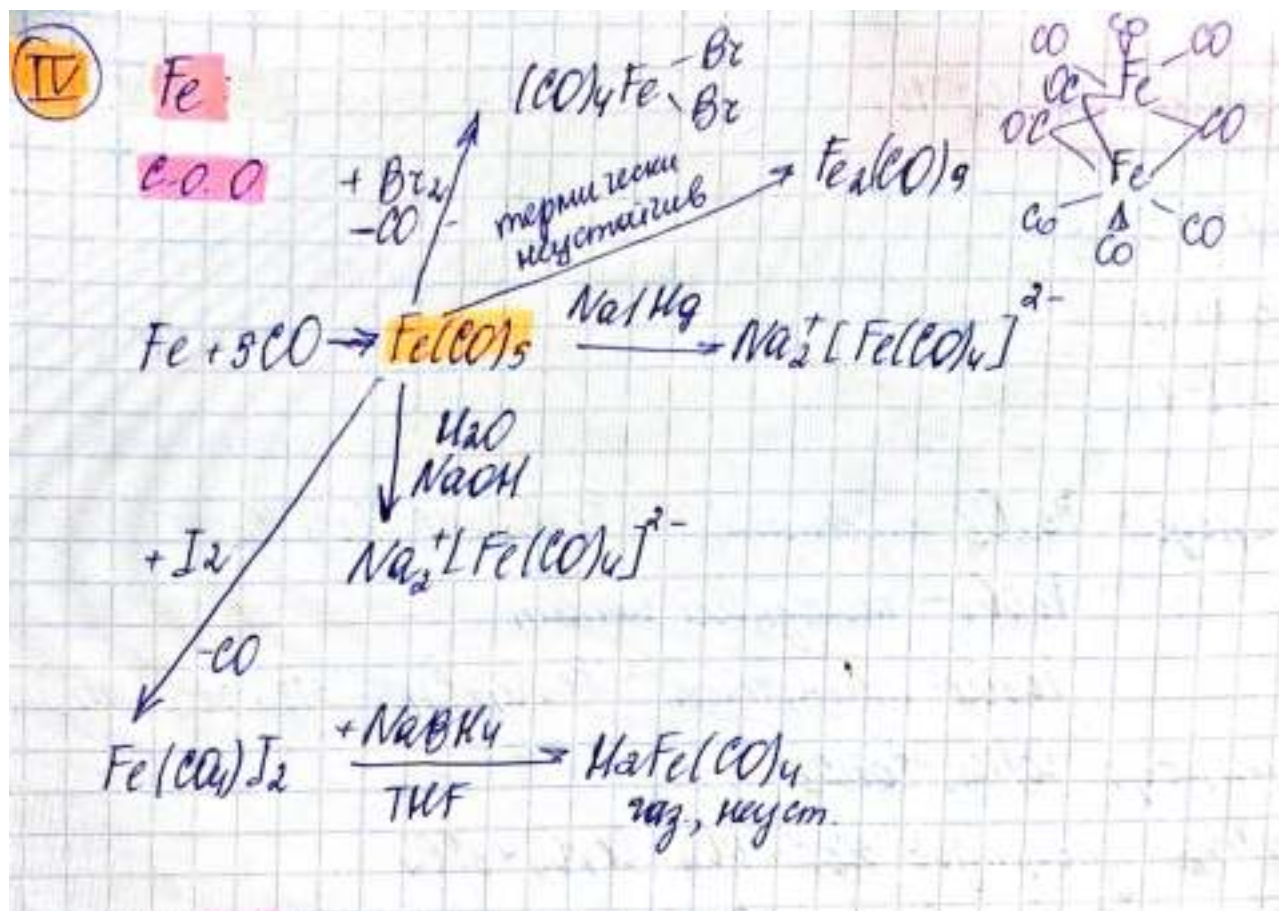 IV
Fe
C.O. O
(CO)4Fe Br
Br
+ Br2
-CO
термически
неустойчив
Fe2(CO)9
CO CO CO
OC Fe
OC CO
Fe
CO CO CO
Fe + 5CO → Fe(CO)5
Na/Hg
Na2+[Fe(CO)4]2-
H2O
NaOH
Na2+[Fe(CO)4]2-
+ I2
-CO
Fe(CO4)I2
+ NaBH4
THF
H2Fe(CO)4
газ., неуст.